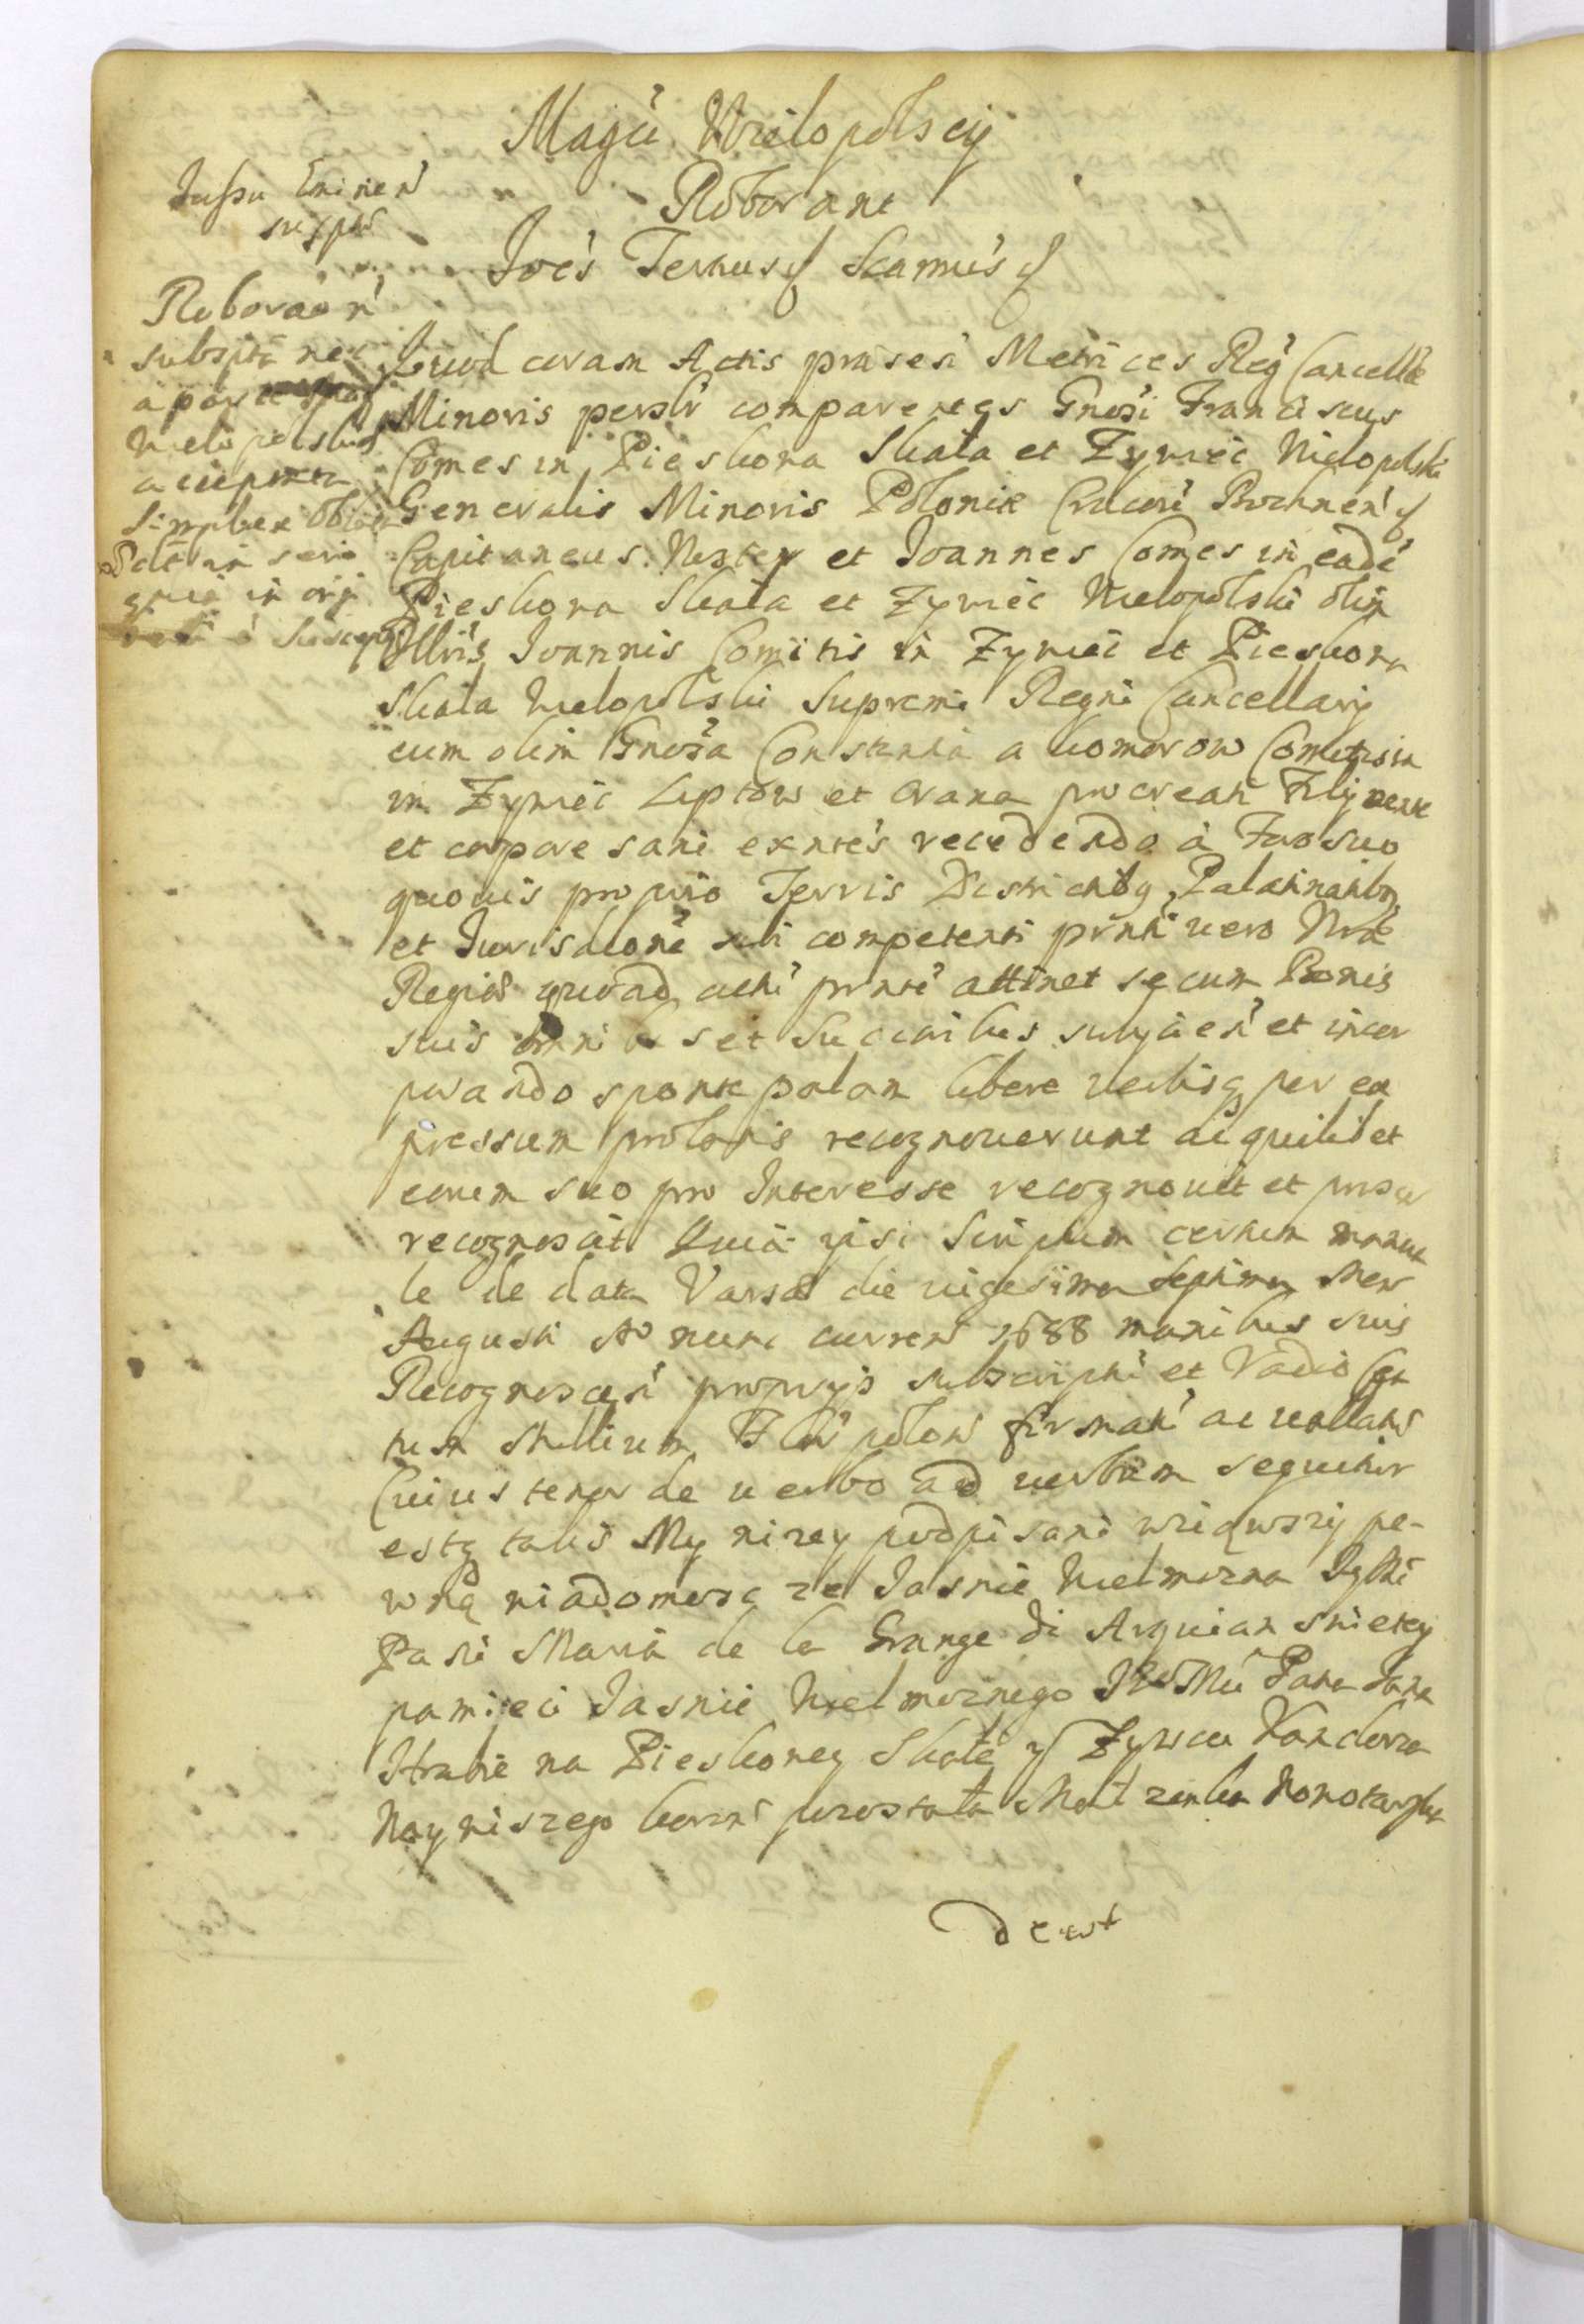 Magci Wielopolscy
Roborant
Jussu Eminen
suscpti
Joes Ternus Scamnis
Roboraon
subscpta nec
a parte
Wielopolskich
accepta
Simplex
in serie
quia in ori
suscept
Quod coram Actis præsen Metrices Reg Cancellæ
Minoris persolr comparentes Gnosi Franciscus
Comes in Pieskowa Skała et Zywiec Wielopolski
Generalis Minoris Poloniæ Cracovi Bochnen
Capitaneus Noster et Joannes Comes in eade
Pieskowa Skała et Zywiec Wielopolski olim
Illris Joannis Comitis in Zywiec et Pieskowa
Skała Wielopolski Supremi Regni Cancellarij
cum olim Gnosa Constantia a Komorow Comitissa
in Zywiec Liptow et Orawa procreati Filij mente
et corpore sani exntes recedendo à Foro suo
quovis proprio Terris Districtibq Palatinatibq
et Jurisdione sibi competenti prnti vero Nræ
Regiæ quoad acti prnti attinet se cum Bonis
suis omnibus et Succribus subjicien et incor
porando sponte palam libere verbisq per ex
pressum prolatis recognoverunt ac quilibet
eorum suo pro Interesse recognovit et prosr
recognoscit Quia ipsi Scriptum certum manua
le de data Varsa die vigesima Septima Men
Augusti Ao nunc curren 1688 manibus suis
Recognoscen proprijs subscripti et Vadio Cen
tum Millium Flor polon firmati ac vallati
Cuius tenor de verbo ad verbum sequitur
estq talis My nizey podpisani wziąwszy pe-
wną wiadomosc ze Jasnie Wielmozna Jey Mci
Pani Maria de la Grange di Arquian swietey
pamięci Jasnie Wielmoznego Jeo Mci Pana Jana
Hrabie na Pieskowey Skale y Zywcu Kanclerza
Naywiszego Koron pozostała Małzonka Nowotarska
dewt